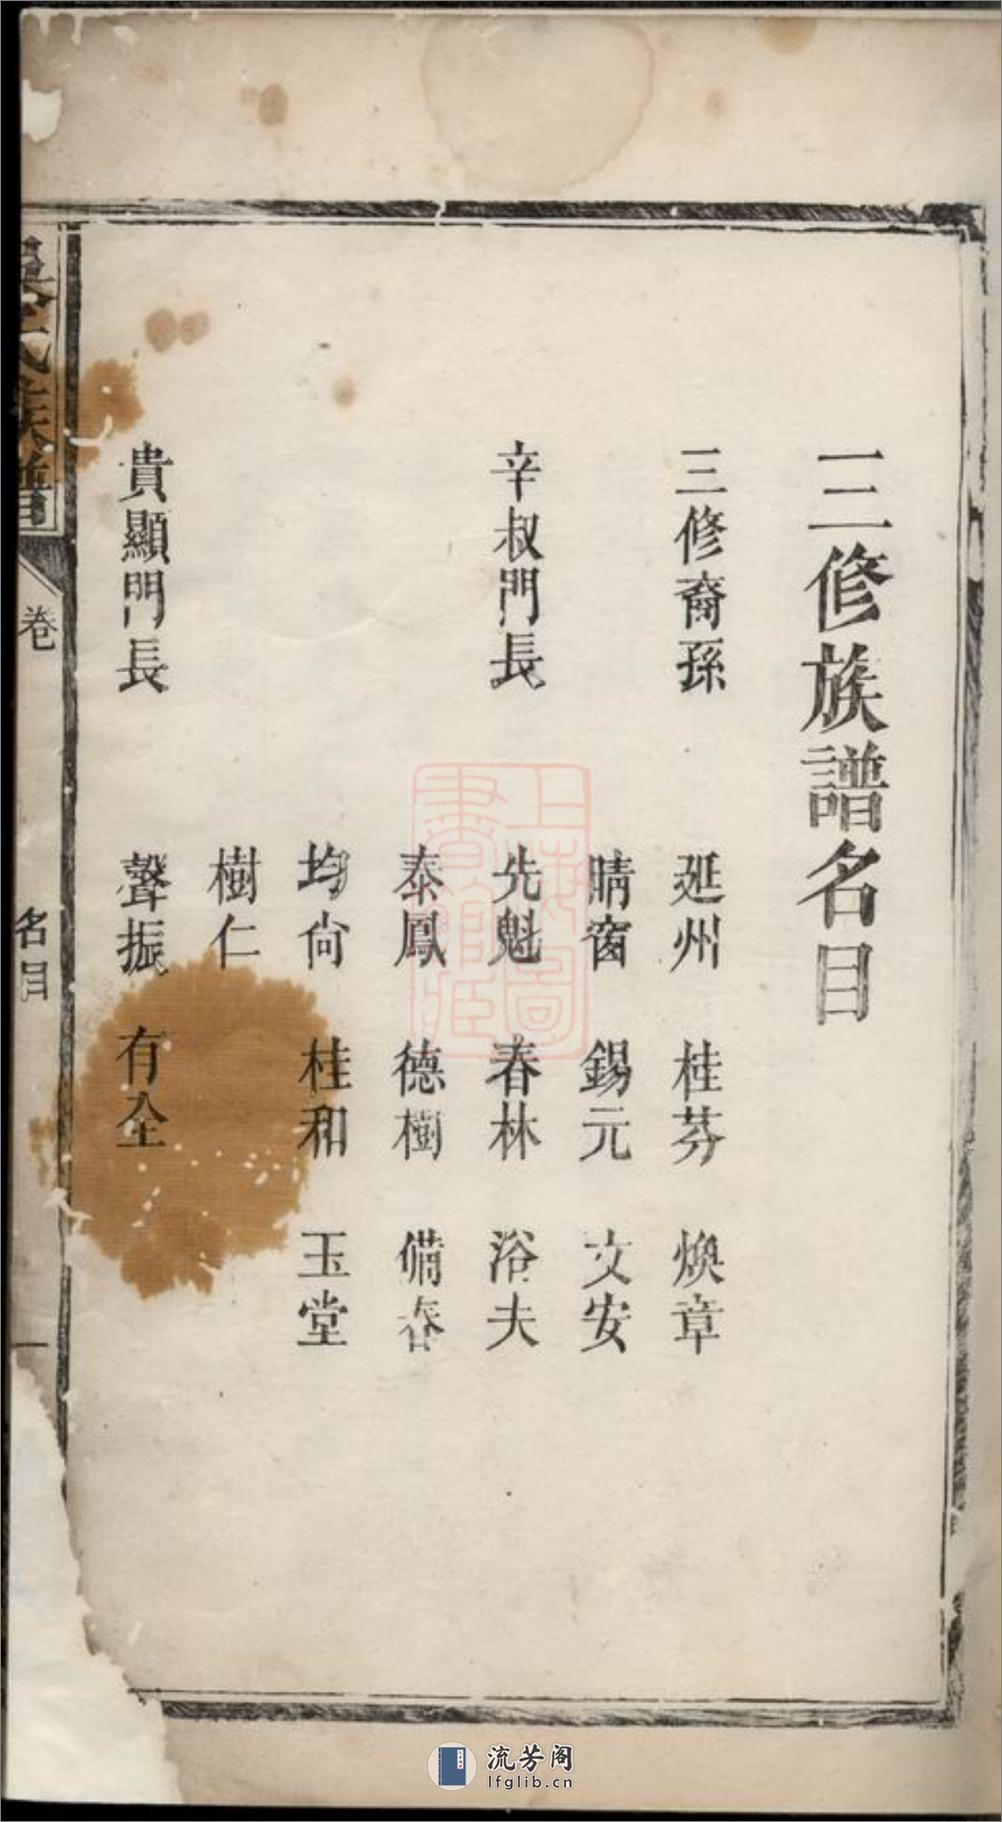 三修族譜名目
三修裔孫 延州 桂芬 煥章
晴窗 錫元 文安
辛叔門長 先魁 春林 浴夫
泰鳳 德樹 備春
均尙 桂和 玉堂
樹仁
貴顯門長 聲振 有全
吳氏族譜 卷 名目 一
上海圖書館藏
流芳阁
lfglib.cn